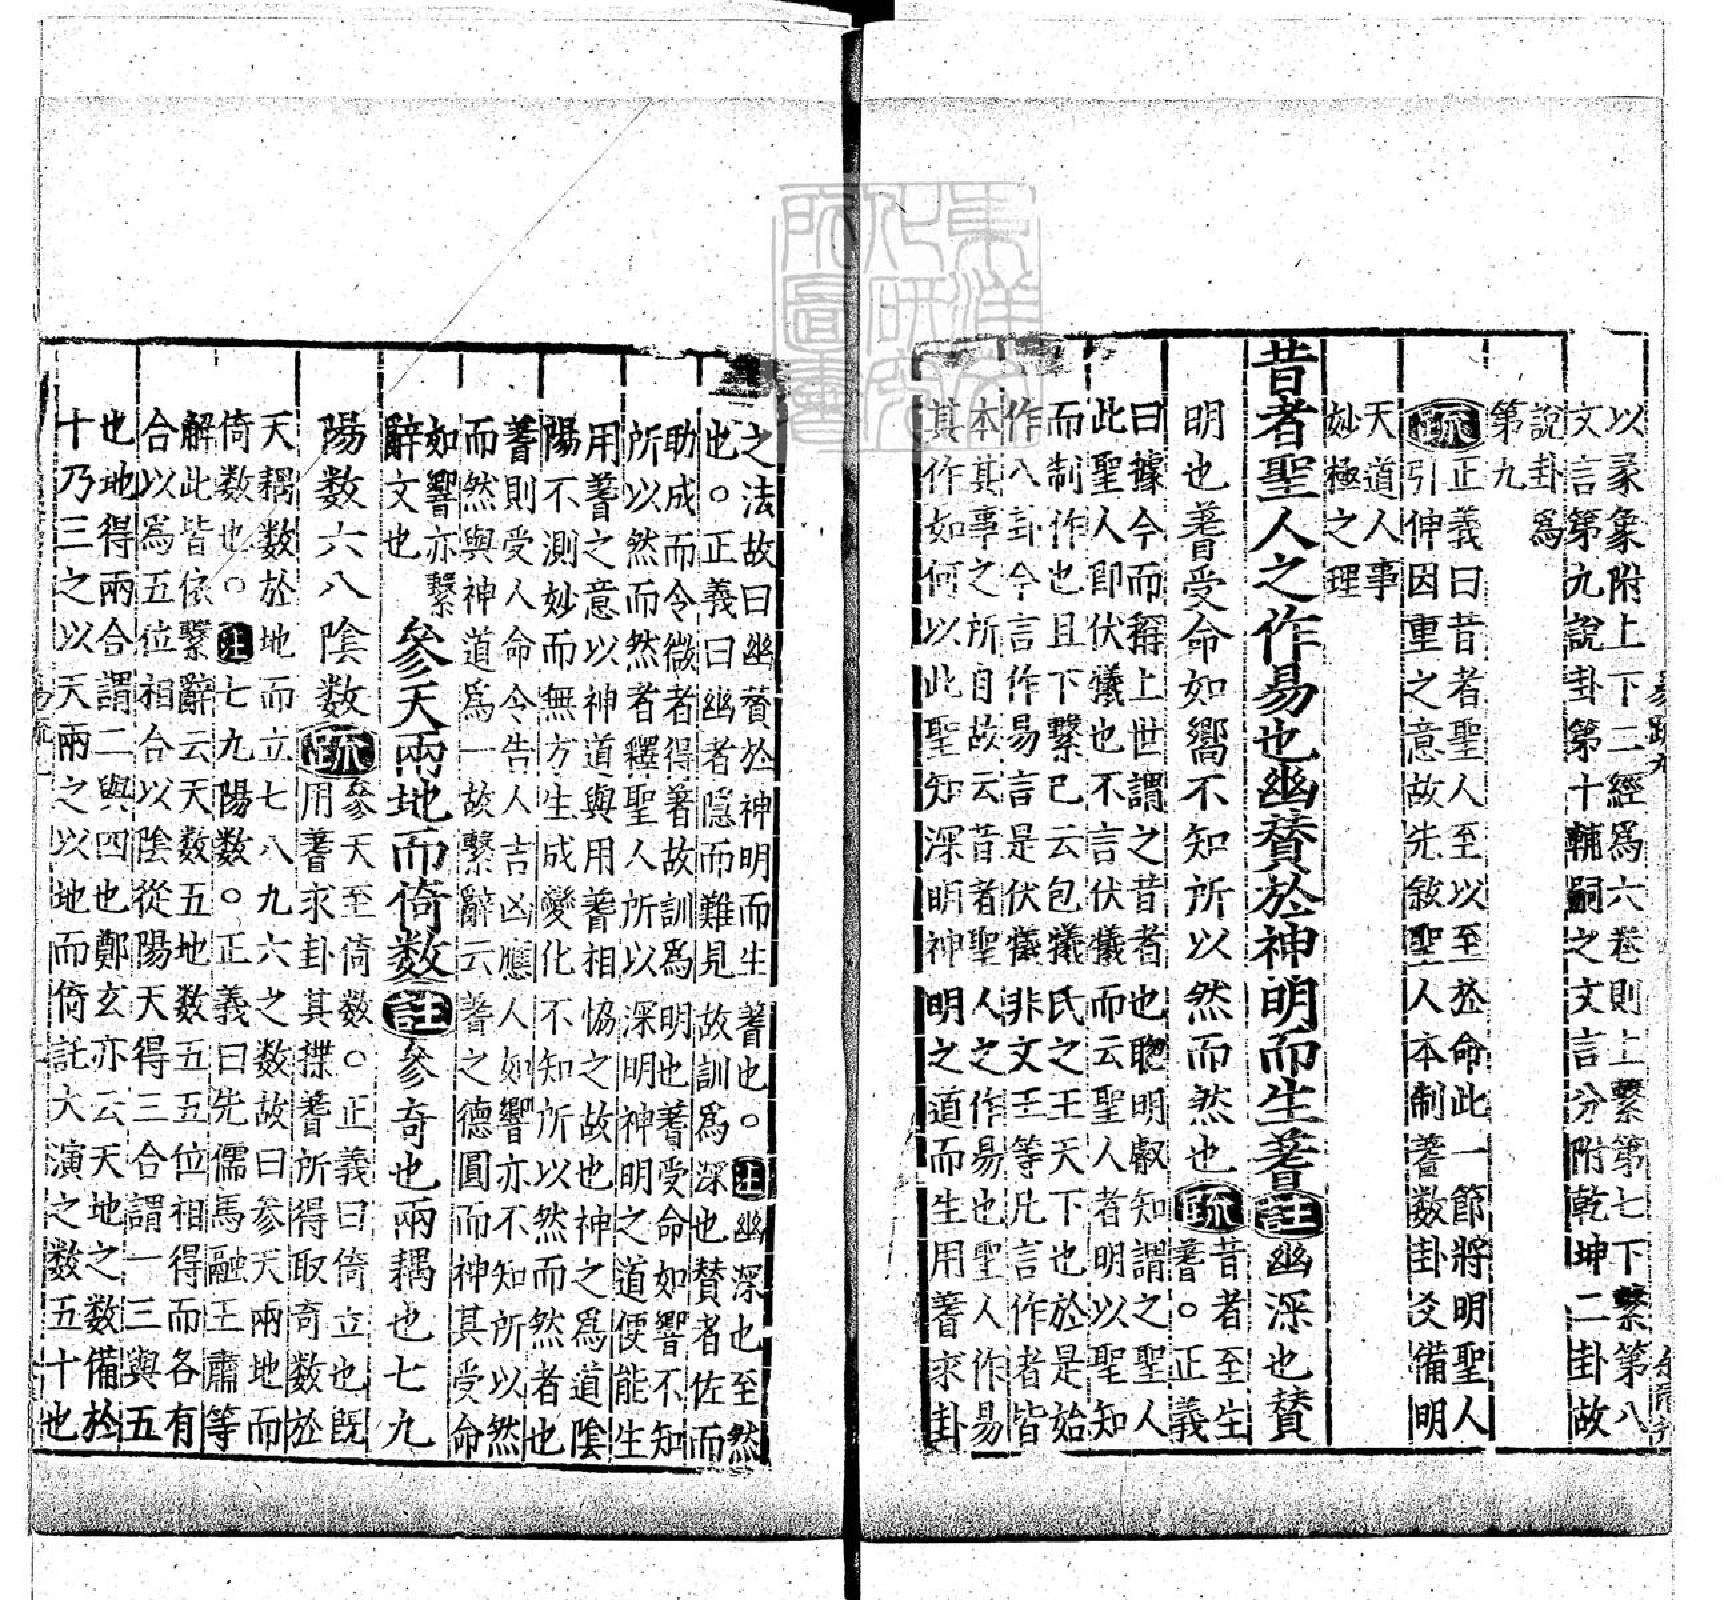 以彖象附上下二經爲六卷則上繫第七下繫第八
文言第九說卦第十輔嗣之文言分附乾坤二卦故
說卦爲
第九
疏正義曰昔者聖人至以至於命此一節將明聖人
引伸因重之意故先敘聖人本制蓍數卦爻備明
天道人事
妙極之理
昔者聖人之作易也幽賛於神明而生蓍註幽深也賛
明也蓍受命如嚮不知所以然而然也疏昔者至生
蓍○正義
曰據今而稱上世謂之昔者也聦明叡知謂之聖人
此聖人即伏犧也不言伏犧而云聖人者明以聖知
而制作也且下繫已云包犧氏之王天下也於是始
作八卦今言作易言是伏犧非文王等凡言作者皆
本其事之所自故云昔者聖人之作易也聖人作易
其作如何以此聖知深明神明之道而生用蓍求卦
之法故曰幽賛於神明而生蓍也○註幽深也至然
也○正義曰幽者隱而難見故訓爲深也賛者佐而
助成而令微者得著故訓爲明也蓍受命如響不知
所以然而然者釋聖人所以深明神明之道便能生
用蓍之意以神道與用蓍相恊之故也神之爲道陰
陽不測妙而無方生成變化不知所以然而然者也
蓍則受人命令告人吉凶應人如響亦不知所以然
而然與神道爲一故繫辭云蓍之德圓而神其受命
如響亦繫
辭文也
參天兩地而倚数註參奇也兩耦也七九
陽数六八陰数疏參天至倚数○正義曰倚立也既
用蓍求卦其揲蓍所得取奇数於
天耦数於地而立七八九六之数故曰參天兩地而
倚数也○註七九陽数○正義曰先儒馬融王肅等
解此皆依繫辭云天数五地数五五位相得而各有
合以爲五位相合以陰從陽天得三合謂一三與五
也地得兩合謂二與四也鄭玄亦云天地之数備於
十乃三之以天兩之以地而倚託大演之数五十也